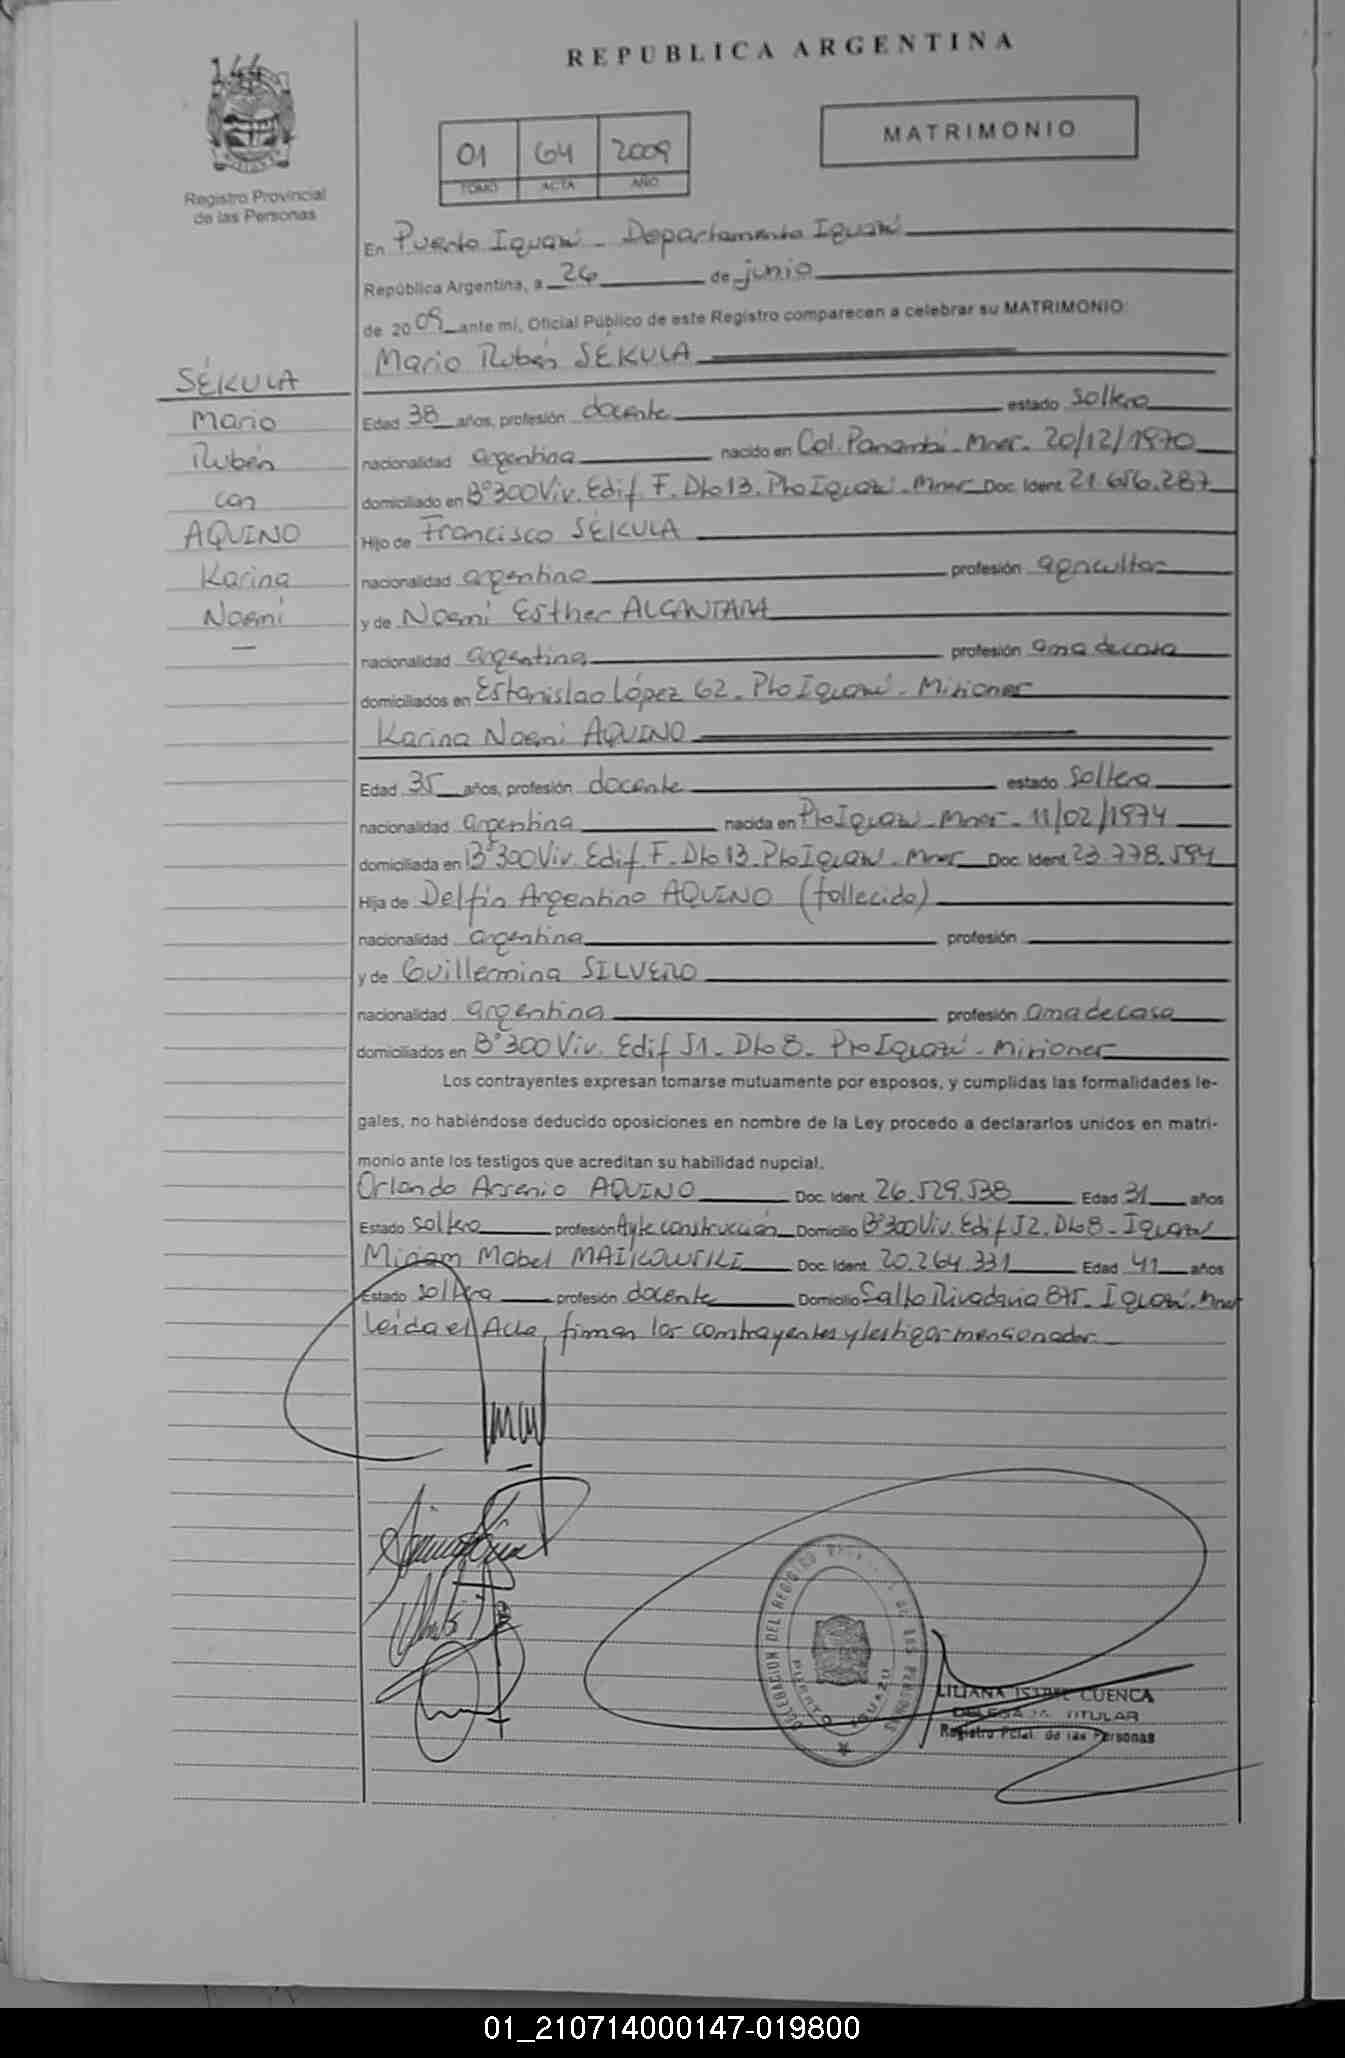 144
REPUBLICA ARGENTINA
MATRIMONIO
01 64 2009
TOMO ACTA AÑO
Registro Provincial
de las Personas
En Puerto Iguazú - Departamento Iguazú
República Argentina, a 26 de junio
de 2009 ante mí, Oficial Público de este Registro comparecen a celebrar su MATRIMONIO:
Mario Rubén SÉKULA
SÉKULA
Mario
Rubén
con
AQUINO
Karina
Noemí
Edad 38 años, profesión docente estado soltero
nacionalidad argentina nacido en Col. Panambí - Mnes. 20/12/1970
domiciliado en B° 300 Viv. Edif. F. Dto 13. Pto Iguazú - Mnes Doc. Ident. 21.656.287
Hijo de Francisco SÉKULA
nacionalidad argentina profesión agricultor
y de Noemí Esther ALCANTARA
nacionalidad argentina profesión ama de casa
domiciliados en Estanislao López 62 - Pto Iguazú - Misiones
Karina Noemí AQUINO
Edad 35 años, profesión docente estado soltera
nacionalidad argentina nacida en Pto Iguazú - Mnes - 11/02/1974
domiciliada en B° 300 Viv. Edif. F. Dto 13. Pto Iguazú - Mnes Doc. Ident. 23.778.594
Hija de Delfín Argentino AQUINO (fallecido)
nacionalidad argentina profesión
y de Guillermina SILVERO
nacionalidad argentina profesión ama de casa
domiciliados en B° 300 Viv. Edif J1 - Dto 8 - Pto Iguazú - Misiones
Los contrayentes expresan tomarse mutuamente por esposos, y cumplidas las formalidades le-
gales, no habiéndose deducido oposiciones en nombre de la Ley procedo a declararlos unidos en matri-
monio ante los testigos que acreditan su habilidad nupcial.
Orlando Arsenio AQUINO Doc. Ident. 26.529.538 Edad 31 años
Estado soltero profesión Ayte construcción Domicilio B° 300 Viv. Edif J2. Dto 8 - Iguazú
Miriam Mabel Doc. Ident. 20.264.331 Edad 41 años
Estado soltera profesión docente Domicilio Salto Rivadavia 875 - Iguazú - Mnes
Leída el Acta, firman los contrayentes y testigos mencionados.
DELEGACION DEL REGISTRO DE LAS PERSONAS
PUERTO IGUAZU
LILIANA ISABEL CUENCA
DELEGADA TITULAR
Registro Pcial. de las Personas
01_210714000147-019800